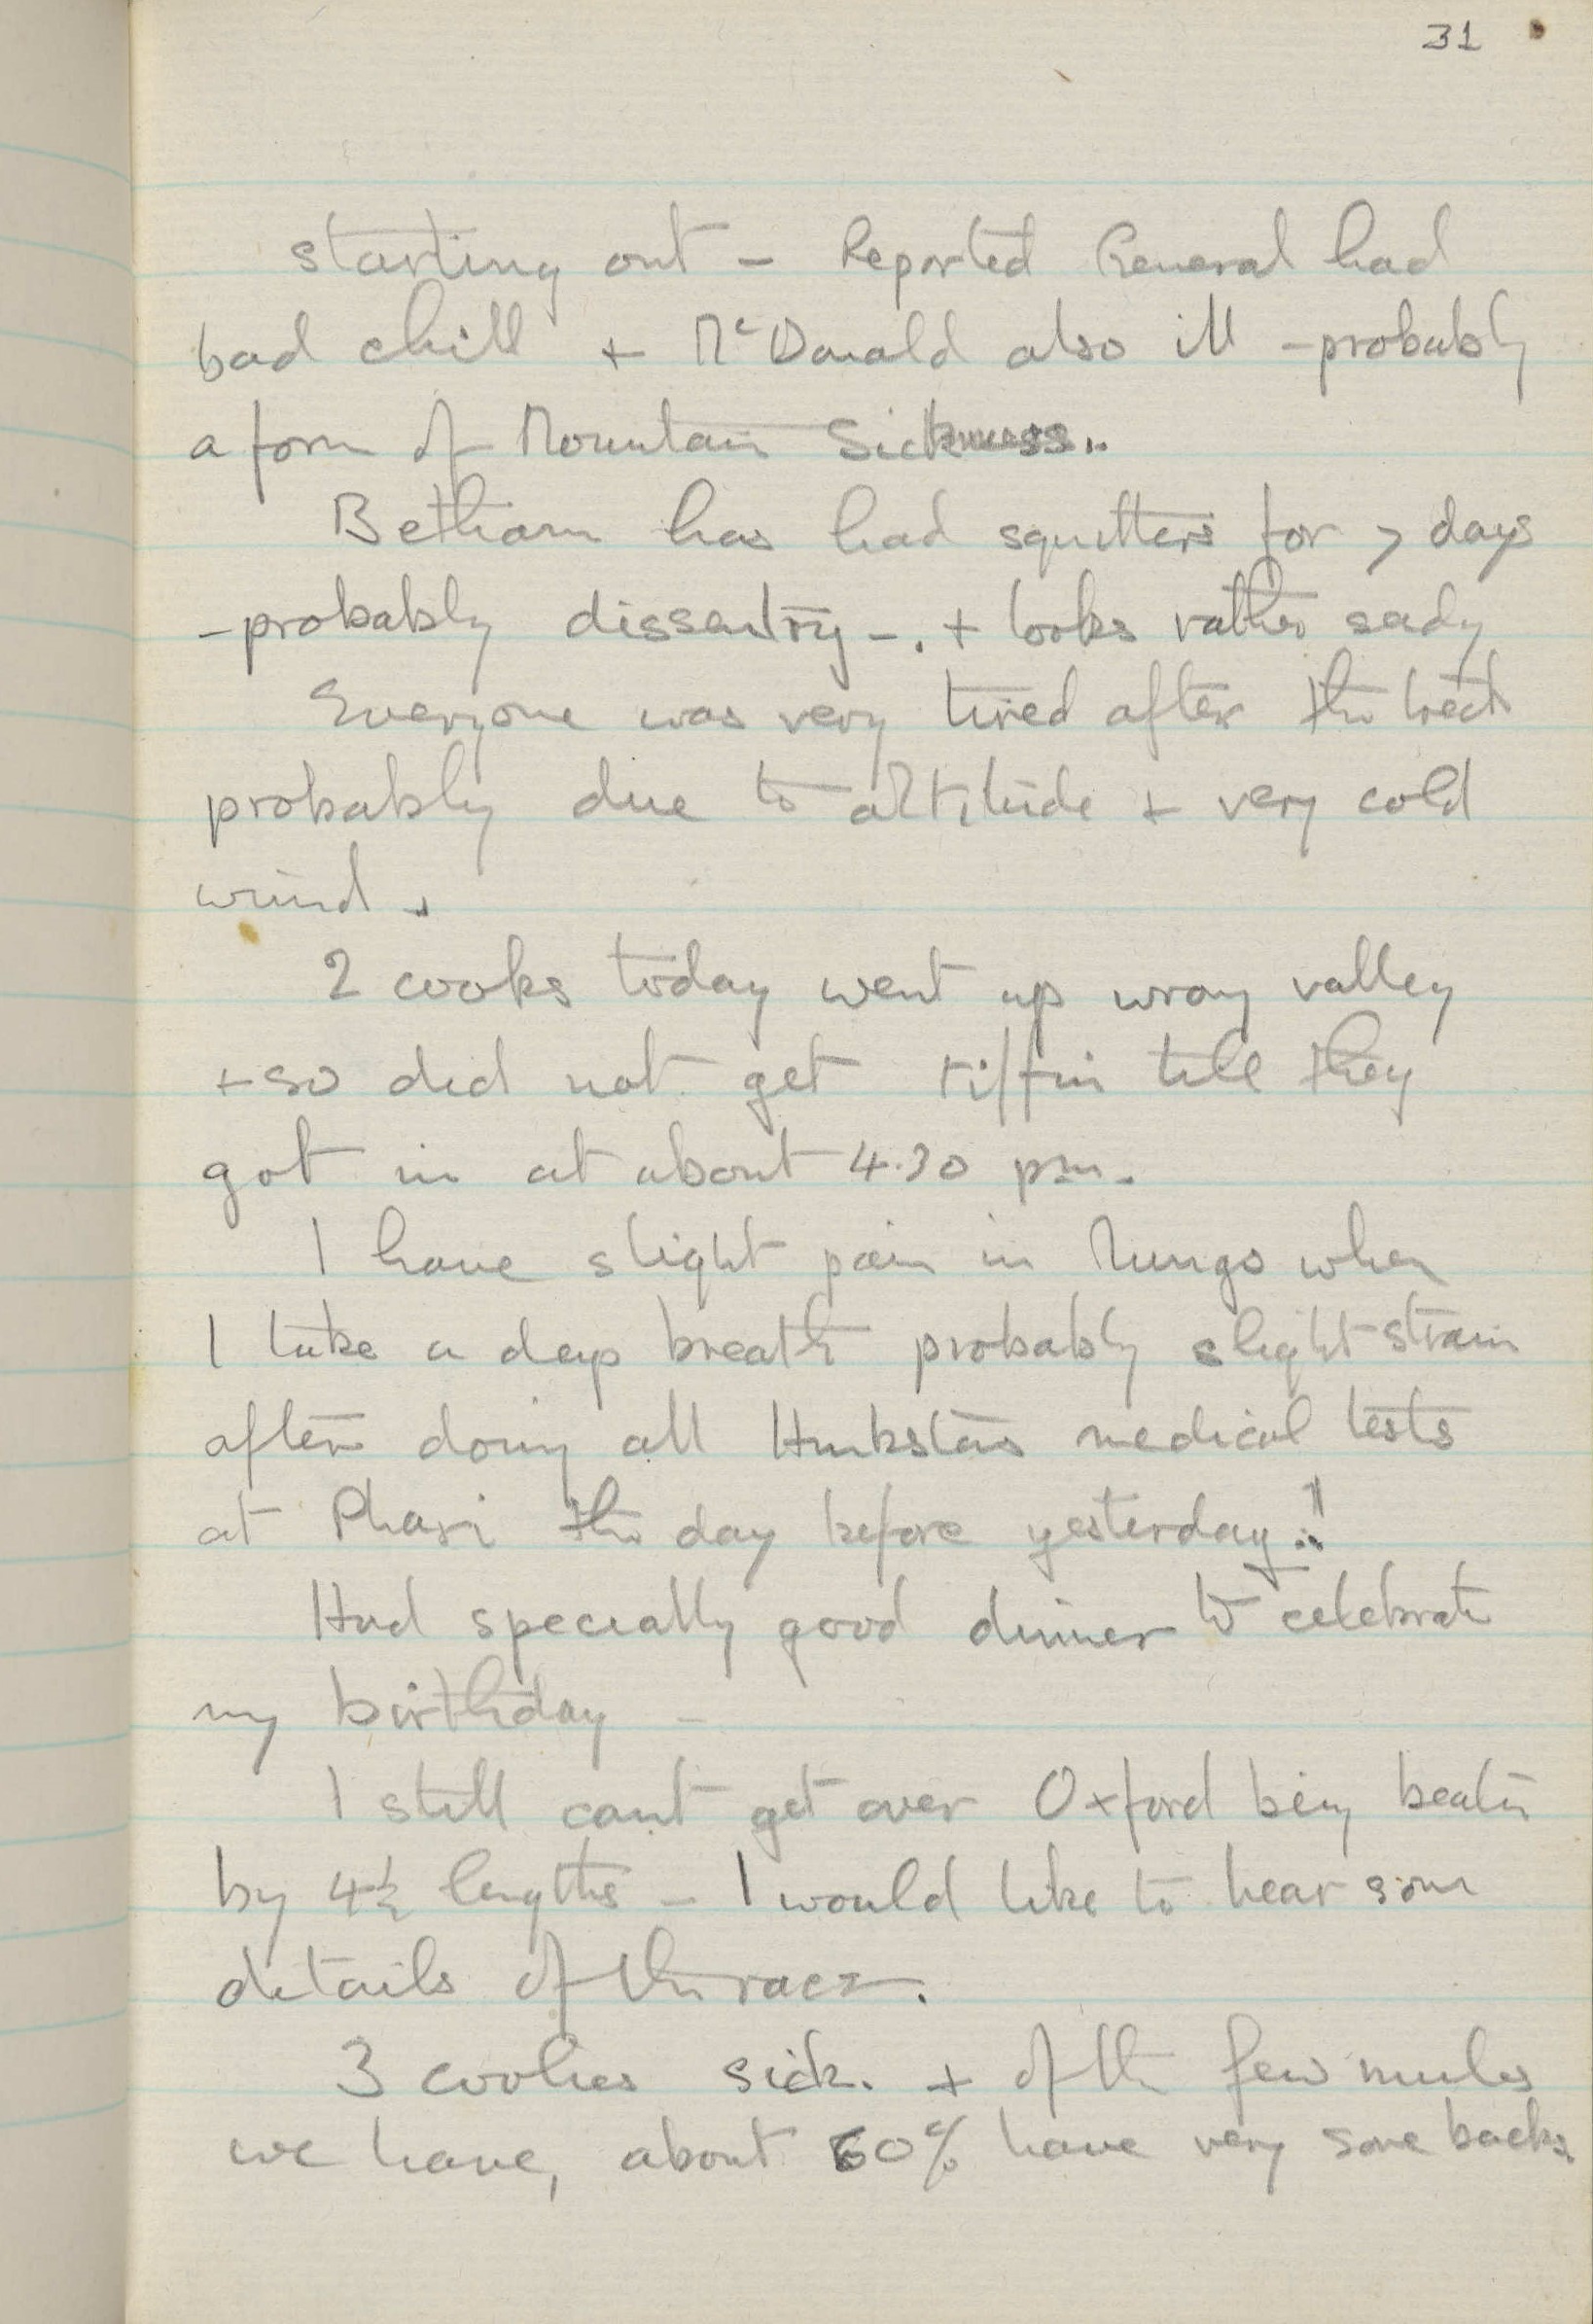 31
starting out - Reported General had
bad chill + McDonald also ill - probably
a form of Mountain Sickness..
Betham has had squitters for 7 days
- probably dissentry -. + looks rather seedy
Everyone was very tired after the trek
probably due to altitude + very cold
wind.
2 cooks today went up wrong valley
+ so did not get tiffin till they
got in at about 4.30 pm.
I have slight pain in lungs when
I take a deep breath probably slight strain
after doing all Hinkstons medical tests
at Phari the day before yesterday!!
Had specially good dinner to celebrate
my birthday -
I still cant get over Oxford being beaten
by 4½ lengths - I would like to hear some
details of the race.
3 coolies sick. + of the few mules
we have, about 60% have very sore backs.